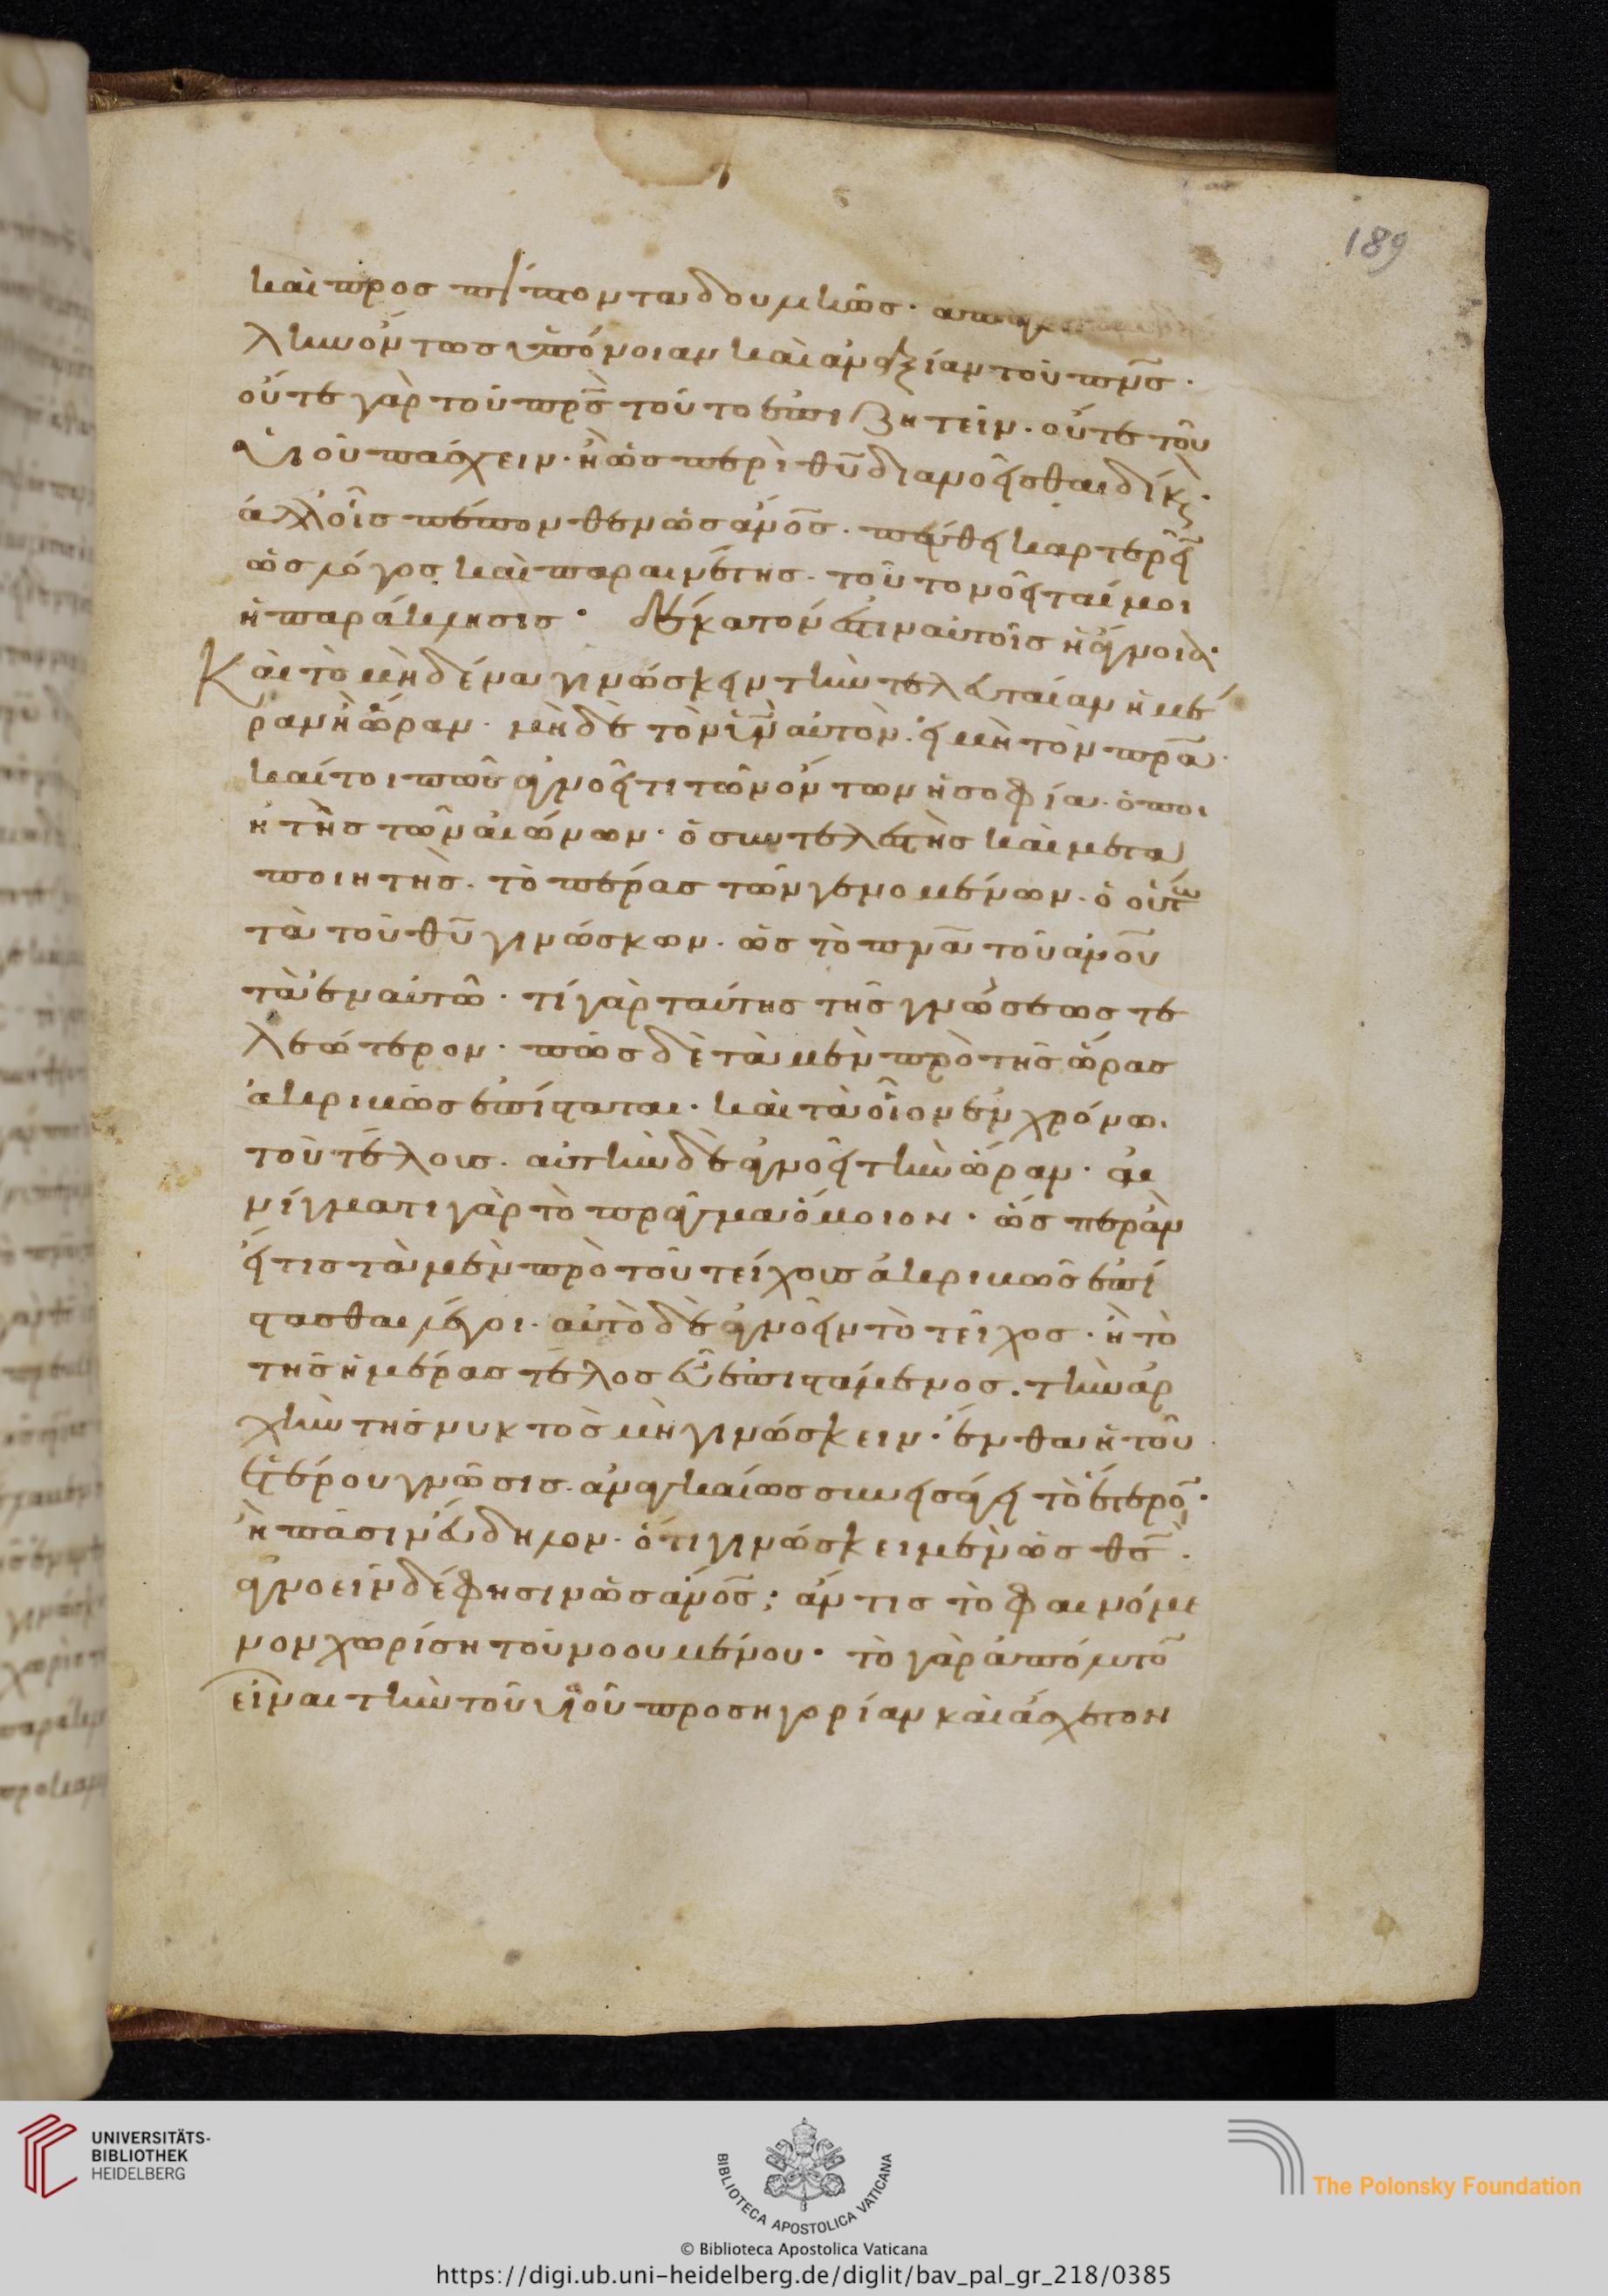 189
καὶ προσπίπτοντα δουλικῶσ·
λκυσόντωσ ὑπόνοιαν καὶ ἀναξίαν τοῦ πν̅σ·
οὔτε γὰρ τοῦ πρ̅σ τοῦτο ἐπιζητεῖν· οὔτε τοῦ
υἱοῦ πάσχειν· ἢ ὡσ περὶ θ̅υ διανοεῖσθαι δίκ·
ἀλλ' οἷσ πέπονθεν ὡσ ἀν̅οσ· πείθει καρτερεῖ
ὡσ λόγοσ καὶ παραινέτησ· τοῦτο νοεῖταί μοι
ἡ παράκλησισ· δέκατον ἐστὶν αὐτοῖσ ἡ ἄγνοια·
Καὶ τὸ μηδένα γινώσκειν τὴν τελευταίαν ἡμέ
ραν ἢ ὥραν· μηδὲ τὸν υἱὸν αὐτὸν· εἰ μὴ τὸν πρ̅α·
καίτοι πῶσ ἀγνοεῖ τι τῶν ὄντων ἡ σοφία· ὁ ποι
ητὴσ τῶν αἰώνων· ὁ συντελεστὴσ καὶ μετα
ποιητὴσ· τὸ πέρασ τῶν γενομένων· ὁ οὕτω
τὰ τοῦ θ̅υ γινώσκων· ὡσ τὸ πν̅α τοῦ ἀν̅ου
τὰ ἐν αὐτῶ· τί γὰρ ταύτησ τῆσ γνώσεωσ τε
λεώτερον· πῶσ δὲ τὰ μὲν πρὸ τῆσ ὥρασ
ἀκριβῶσ ἐπίσταται· καὶ τὰ οἷον ἐν χρόνω·
τοῦ τέλουσ· αὐτὴν δὲ ἀγνοεῖ τὴν ὥραν· αἰ
νίγματι γὰρ τὸ πρᾶγμα ὅμοιον· ὥσπερ ἂν
εἴ τισ τὰ μὲν πρὸ τοῦ τείχουσ ἀκριβῶσ ἐπί
στασθαι λέγοι· αὐτὸ δὲ ἀγνοεῖν τὸ τεῖχοσ· ἢ τὸ
τῆσ ἡμέρασ τέλοσ εὖ ἐπιστάμενοσ· τὴν ἀρ
χὴν τῆσ νυκτὸσ μὴ γινώσκειν· ἔνθα ἡ τοῦ
ἑτέρου γνῶσισ· ἀναγκαίωσ συνεισάγει τὸ ἕτερον·
ἢ πᾶσιν εὔδηλον· ὅτι γινώσκει μὲν ὡσ θ̅σ·
ἀγνοεῖν δέ φησιν ὡσ ἀν̅οσ· ἄν τισ τὸ φαινόμε
νον χωρίση τοῦ νοουμένου· τὸ γὰρ ἀπόλυτον
εἶναι τὴν τοῦ υἱοῦ προσηγορίαν καὶ ἄσχετον
UNIVERSITÄTS-
BIBLIOTHEK
HEIDELBERG
BIBLIOTECA APOSTOLICA VATICANA
The Polonsky Foundation
© Biblioteca Apostolica Vaticana
https://digi.ub.uni-heidelberg.de/diglit/bav_pal_gr_218/0385